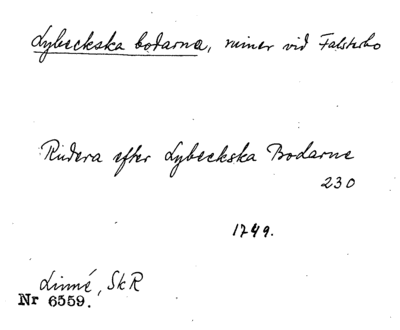 Lybeckska bodarna, ruiner vid Falsterbo
Rudera efter Lybeckska Bodarne
230
1749.
Linné, SkR
Nr 6559.